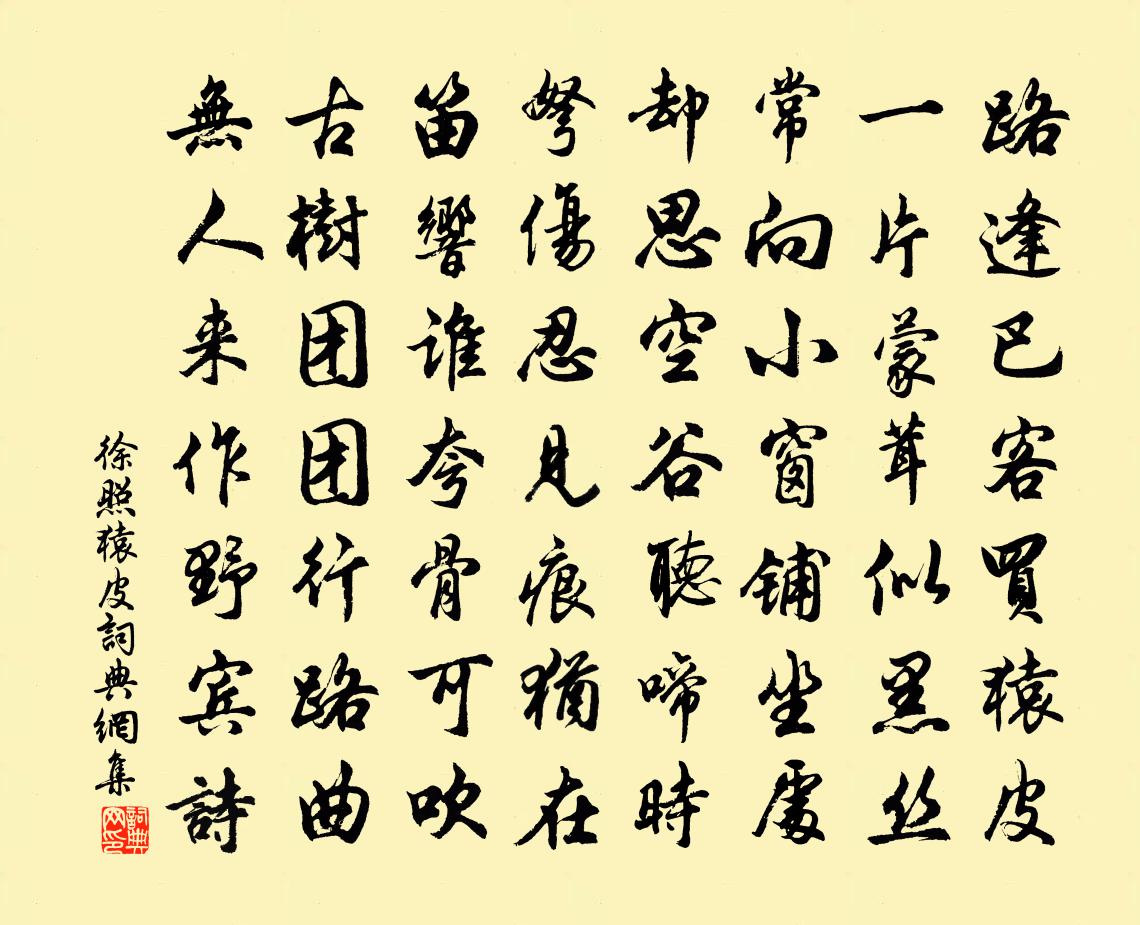 路逢巴客買猿皮
一片蒙茸似黑丝
常向小窗铺坐處
却思空谷聽啼時
弩傷忍見痕猶在
笛響谁夸骨可吹
古樹团团行路曲
無人来作野宾詩
徐照猿皮詞典網集
詞典
网印